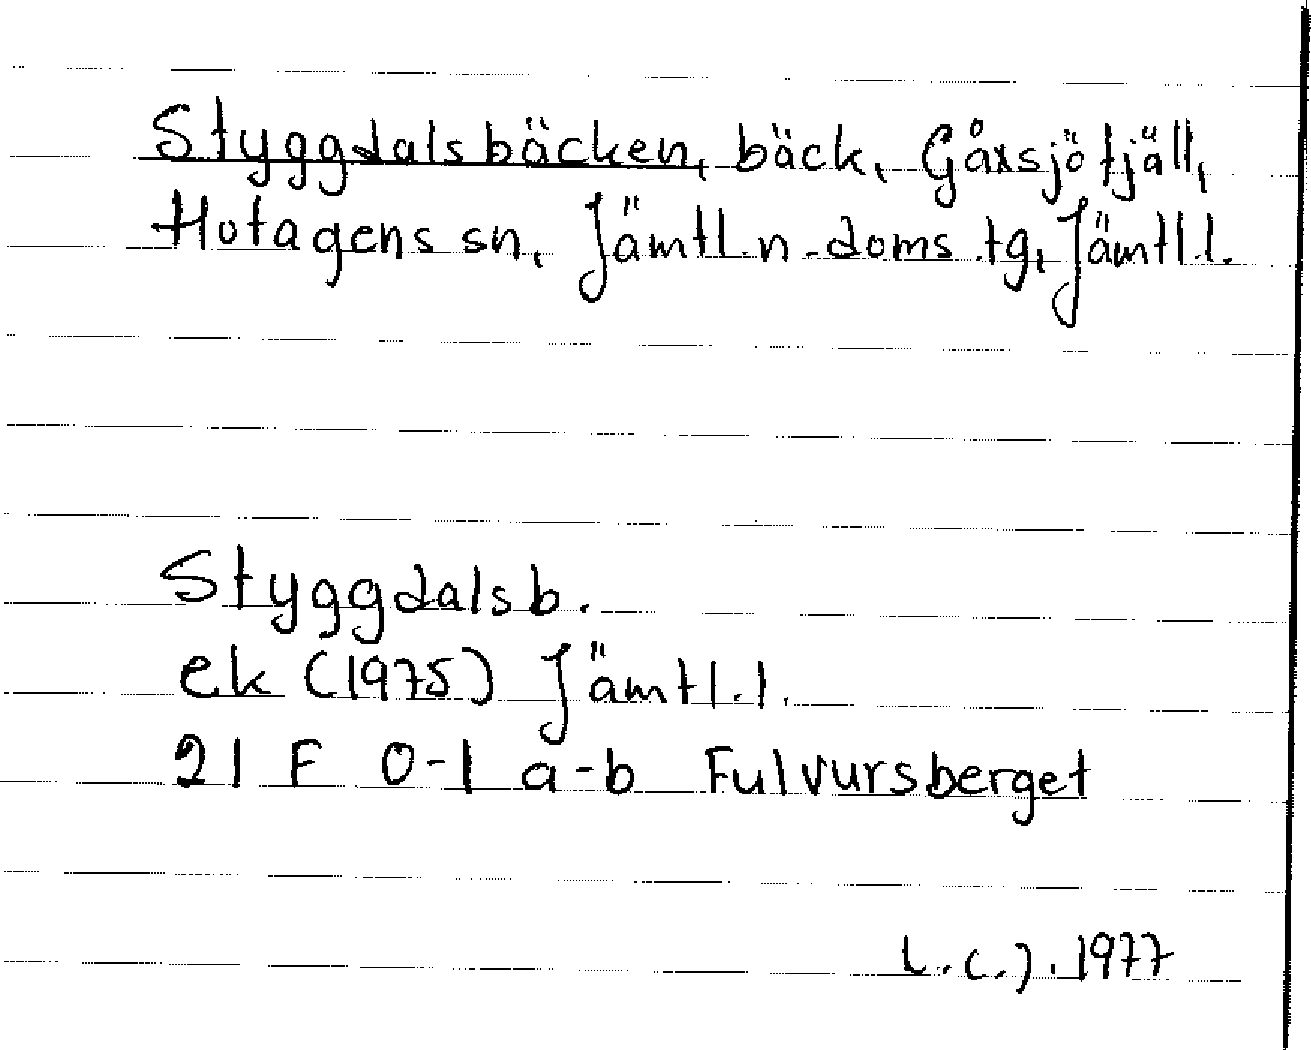 Styggdalsbäcken, bäck, Gåxsjö fjäll,
Hotagens sn, Jämtl. n. doms. tg, Jämtl. l.
Styggdalsb.
ek (1975) Jämtl. l.
21 F 0-1 a-b Fulvursberget
L.C.J. 1977